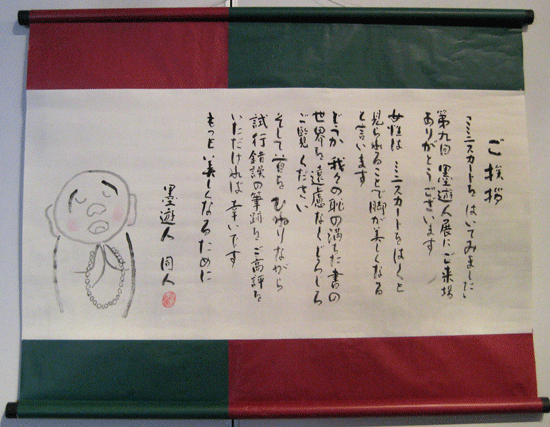 ご挨拶
ミニスカートをはいてみました
第九回 墨遊人展にご来場
ありがとうございます
女性は ミニスカートをはくと
見られることで脚が美しくなる
と言います
どうか 我々の恥の満ちた書の
世界を遠慮なくじろじろ
ご覧ください
そして首をひねりながら
試行錯誤の筆跡をご高評を
いただければ幸いです
もっと美しくなるために
墨遊人 同人